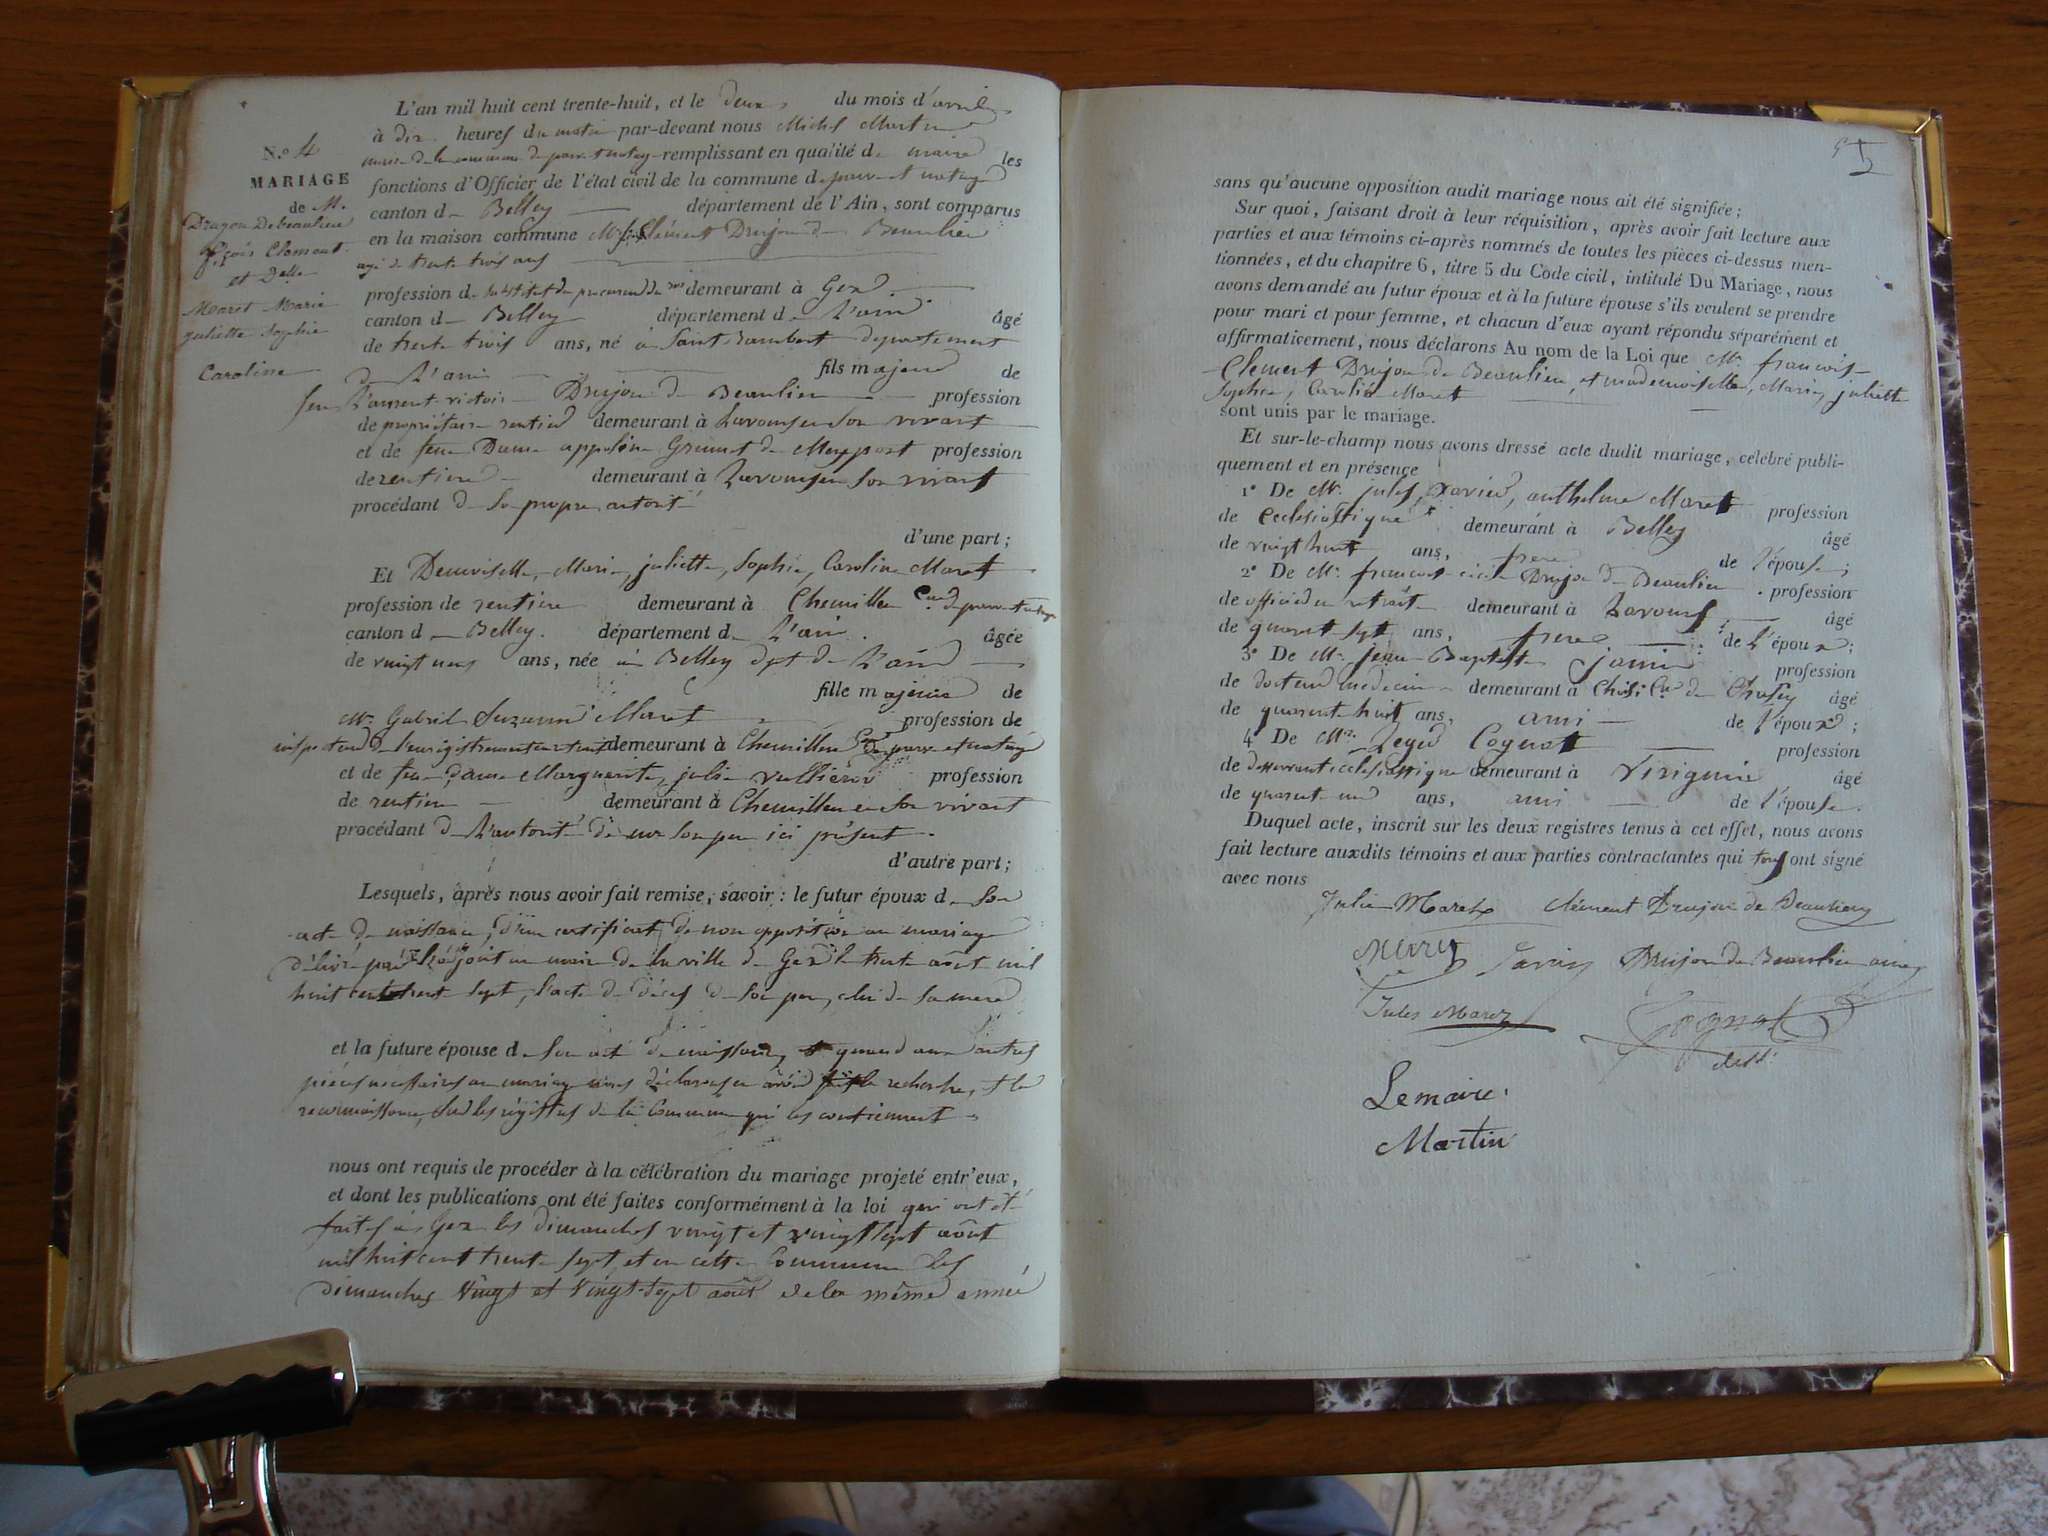 L'an mil huit cent trente-huit, et le deux du mois d'avril
à dix heures du matin par-devant nous Michel Martin
maire de la commune de parve et nattages remplissant en qualité de maire les
fonctions d'Officier de l'état civil de la commune de parve et nattages
N.º 4
MARIAGE
de M.
Drujon Debeaulieu
fçois Clement
et Delle
Maret Marie
juliette Sophie
Caroline
canton d Belley département de l'Ain, sont comparus
en la maison commune Mr fçois Clément Drujon de Beaulieu
agé de trente trois ans
profession de substitut du procureur du roi demeurant à Gex
canton d Belley département d L'ain âgé
de trente trois ans, né à Saint Rambert departement
de L'ain fils majeur de
feu Laurent victoir Drujon de Beaulieu profession
de propriétaire rentier demeurant à Lavours en son vivant
et de feue Dame appoline Grumet de Montpont profession
de rentiere demeurant à Lavours en son vivant
procédant de sa propre autorité
d'une part;
Et Demoiselle, Marie, juliette, Sophie, Caroline Maret
profession de rentiere demeurant à Chemillieu Cne de parve et nattages
canton d Belley. département d L'ain. âgée
de vingt neuf ans, née à Belley dpt de L'ain
fille majeure de
Mr. Gabriel Suzanne Maret profession de
inspecteur de l'enregistrement en retraite demeurant à Chemillieu Cne de parve et nattages
et de feue dame Marguerite, julie vullierod profession
de rentiere demeurant à Chemillieu en son vivant
procédant de L'autorité de son pere ici présent.
d'autre part;
Lesquels, après nous avoir fait remise, savoir: le futur époux de son
acte de naissance, d'un certificat de non opposition au mariage
délivré par l'adjoint au maire de la ville de Gex le trente août mil
huit cent trente sept, l'acte de décès de son pere, celui de sa mere
et la future épouse de son acte de naissance, quand aux autres
pièces nécessaires au mariage nous déclarons en avoir fait la recherche, et la
reconnaissance, sur les régistres de la Commune qui les contiennent
nous ont requis de procéder à la célébration du mariage projeté entr'eux,
et dont les publications ont été faites conformément à la loi qui ont été
faites à Gex les dimanches vingt et vingt sept août
mil huit cent trente sept et en cette Commune les
dimanches vingt et vingt-sept août de la même année
sans qu'aucune opposition audit mariage nous ait été signifiée;
Sur quoi, faisant droit à leur réquisition, après avoir fait lecture aux
parties et aux témoins ci-après nommés de toutes les pièces ci-dessus men-
tionnées, et du chapitre 6, titre 5 du Code civil, intitulé Du Mariage, nous
avons demandé au futur époux et à la future épouse s'ils veulent se prendre
pour mari et pour femme, et chacun d'eux ayant répondu séparément et
affirmativement, nous déclarons Au nom de la Loi que Mr. francois
Clement Drujon de Beaulieu, et mademoiselle, Marie, juliette
Sophie, Caroline Maret
sont unis par le mariage.
Et sur-le-champ nous avons dressé acte dudit mariage, célébré publi-
quement et en présence
1º De Mr. jules, Xavier, anthelme Maret profession
de Ecclesiastique demeurant à Belley âgé
de vingt huit ans, frere de l'épouse;
2º De Mr. francois Drujon de Beaulieu profession
de officier en retraite demeurant à Lavours âgé
de quarante sept ans, frere de l'époux;
3º De Mr. jean Baptiste janin profession
de docteur médecin demeurant à Cne de âgé
de quarante huit ans, ami de l'époux;
4 De Mr. Leger Cognat profession
de desservant ecclesiastique demeurant à Virignin âgé
de quarante un ans, ami de l'épouse.
Duquel acte, inscrit sur les deux registres tenus à cet effet, nous avons
fait lecture auxdits témoins et aux parties contractantes qui tous ont signé
avec nous
Julie Maret Clément Drujon de Beaulieu
Maret Janin Drujon de Beaulieu ainé
Jules Maret Cognat
dess.
Lemaire.
Martin